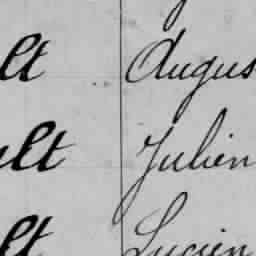 lt Augus
ult Julien
lt Lucien